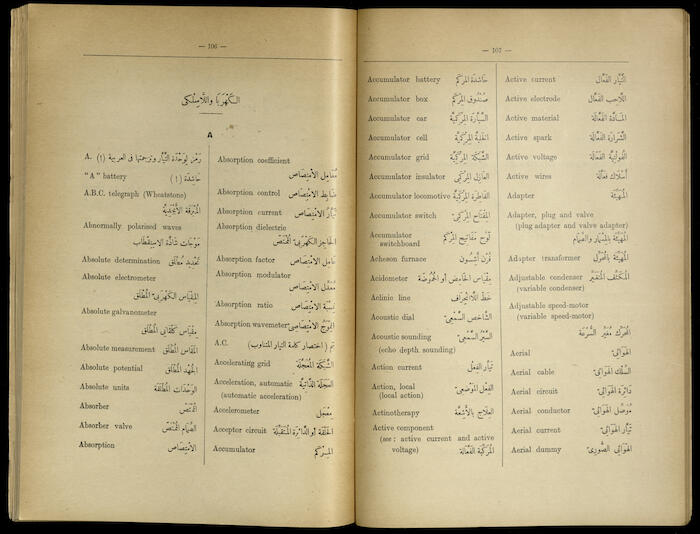 — 106 —
الكهربا واللاسلكي
A
A. رمز لوحدة التيار وترجمتها فى العربية (١)
"A" battery حاشدة (١)
A.B.C. telegraph (Wheatstone)
المبرقة الأبجدية
Abnormally polarised waves
موجات شاذة الاستقطاب
Absolute determination تحديد مطلق
Absolute electrometer
المقياس الكهربى المطلق
Absolute galvanometer
مقياس كلفانى المطلق
Absolute measurement القياس المطلق
Absolute potential الجهد المطلق
Absolute units الوحدات المطلقة
Absorber الممتص
Absorber valve الصمام الممتص
Absorption الامتصاص
Absorption coefficient
معامل الامتصاص
Absorption control ضابط الامتصاص
Absorption current تيار الامتصاص
Absorption dielectric
الحاجز الكهربى الممتص
Absorption factor عامل الامتصاص
Absorption modulator
معدل الامتصاص
Absorption ratio نسبة الامتصاص
Absorption wavemeter
A.C. تم (اختصار كلمة التيار المتناوب)
Accelerating grid الشبكة المعجلة
Acceleration, automatic العجلة الذاتية
(automatic acceleration)
Accelerometer معجل
Acceptor circuit الحلقة أو الدائرة المتقبلة
Accumulator المركم
— 107 —
Accumulator battery حاشدة المركم
Accumulator box صندوق المركم
Accumulator car السيارة المركمية
Accumulator cell الخلية المركمية
Accumulator grid الشبكة المركمية
Accumulator insulator العازل المركمى
Accumulator locomotive القاطرة المركمية
Accumulator switch المفتاح المركمى
Accumulator
switchboard لوح مفاتيح المركم
Acheson furnace فرن أتشسون
Acidometer مقياس الحامض أو الحموضة
Aclinic line خط اللاانحراف
Acoustic dial الشاخص السمعى
Acoustic sounding السبر السمعى
(echo depth sounding)
Action current تيار الفعل
Action, local الفعل الموضعى
(local action)
Actinotherapy العلاج بالأشعة
Active component
(see : active current and active
voltage) المركبة الفعالة
Active current التيار الفعال
Active electrode اللاحب الفعال
Active material المادة الفعالة
Active spark الشرارة الفعالة
Active voltage الفولتية الفعالة
Active wires أسلاك فعالة
Adapter المهيئة
Adapter, plug and valve
(plug adapter and valve adapter)
المهيئة بالمسمار والصمام
Adapter transformer المهيئة بالمحول
Adjustable condenser المكثف المتغير
(variable condenser)
Adjustable speed-motor
(variable speed-motor)
المحرك مغير السرعة
Aerial الهوائى
Aerial cable السلك الهوائى
Aerial circuit دائرة الهوائى
Aerial conductor موصل الهوائى
Aerial current تيار الهوائى
Aerial dummy الهوائى الصورى